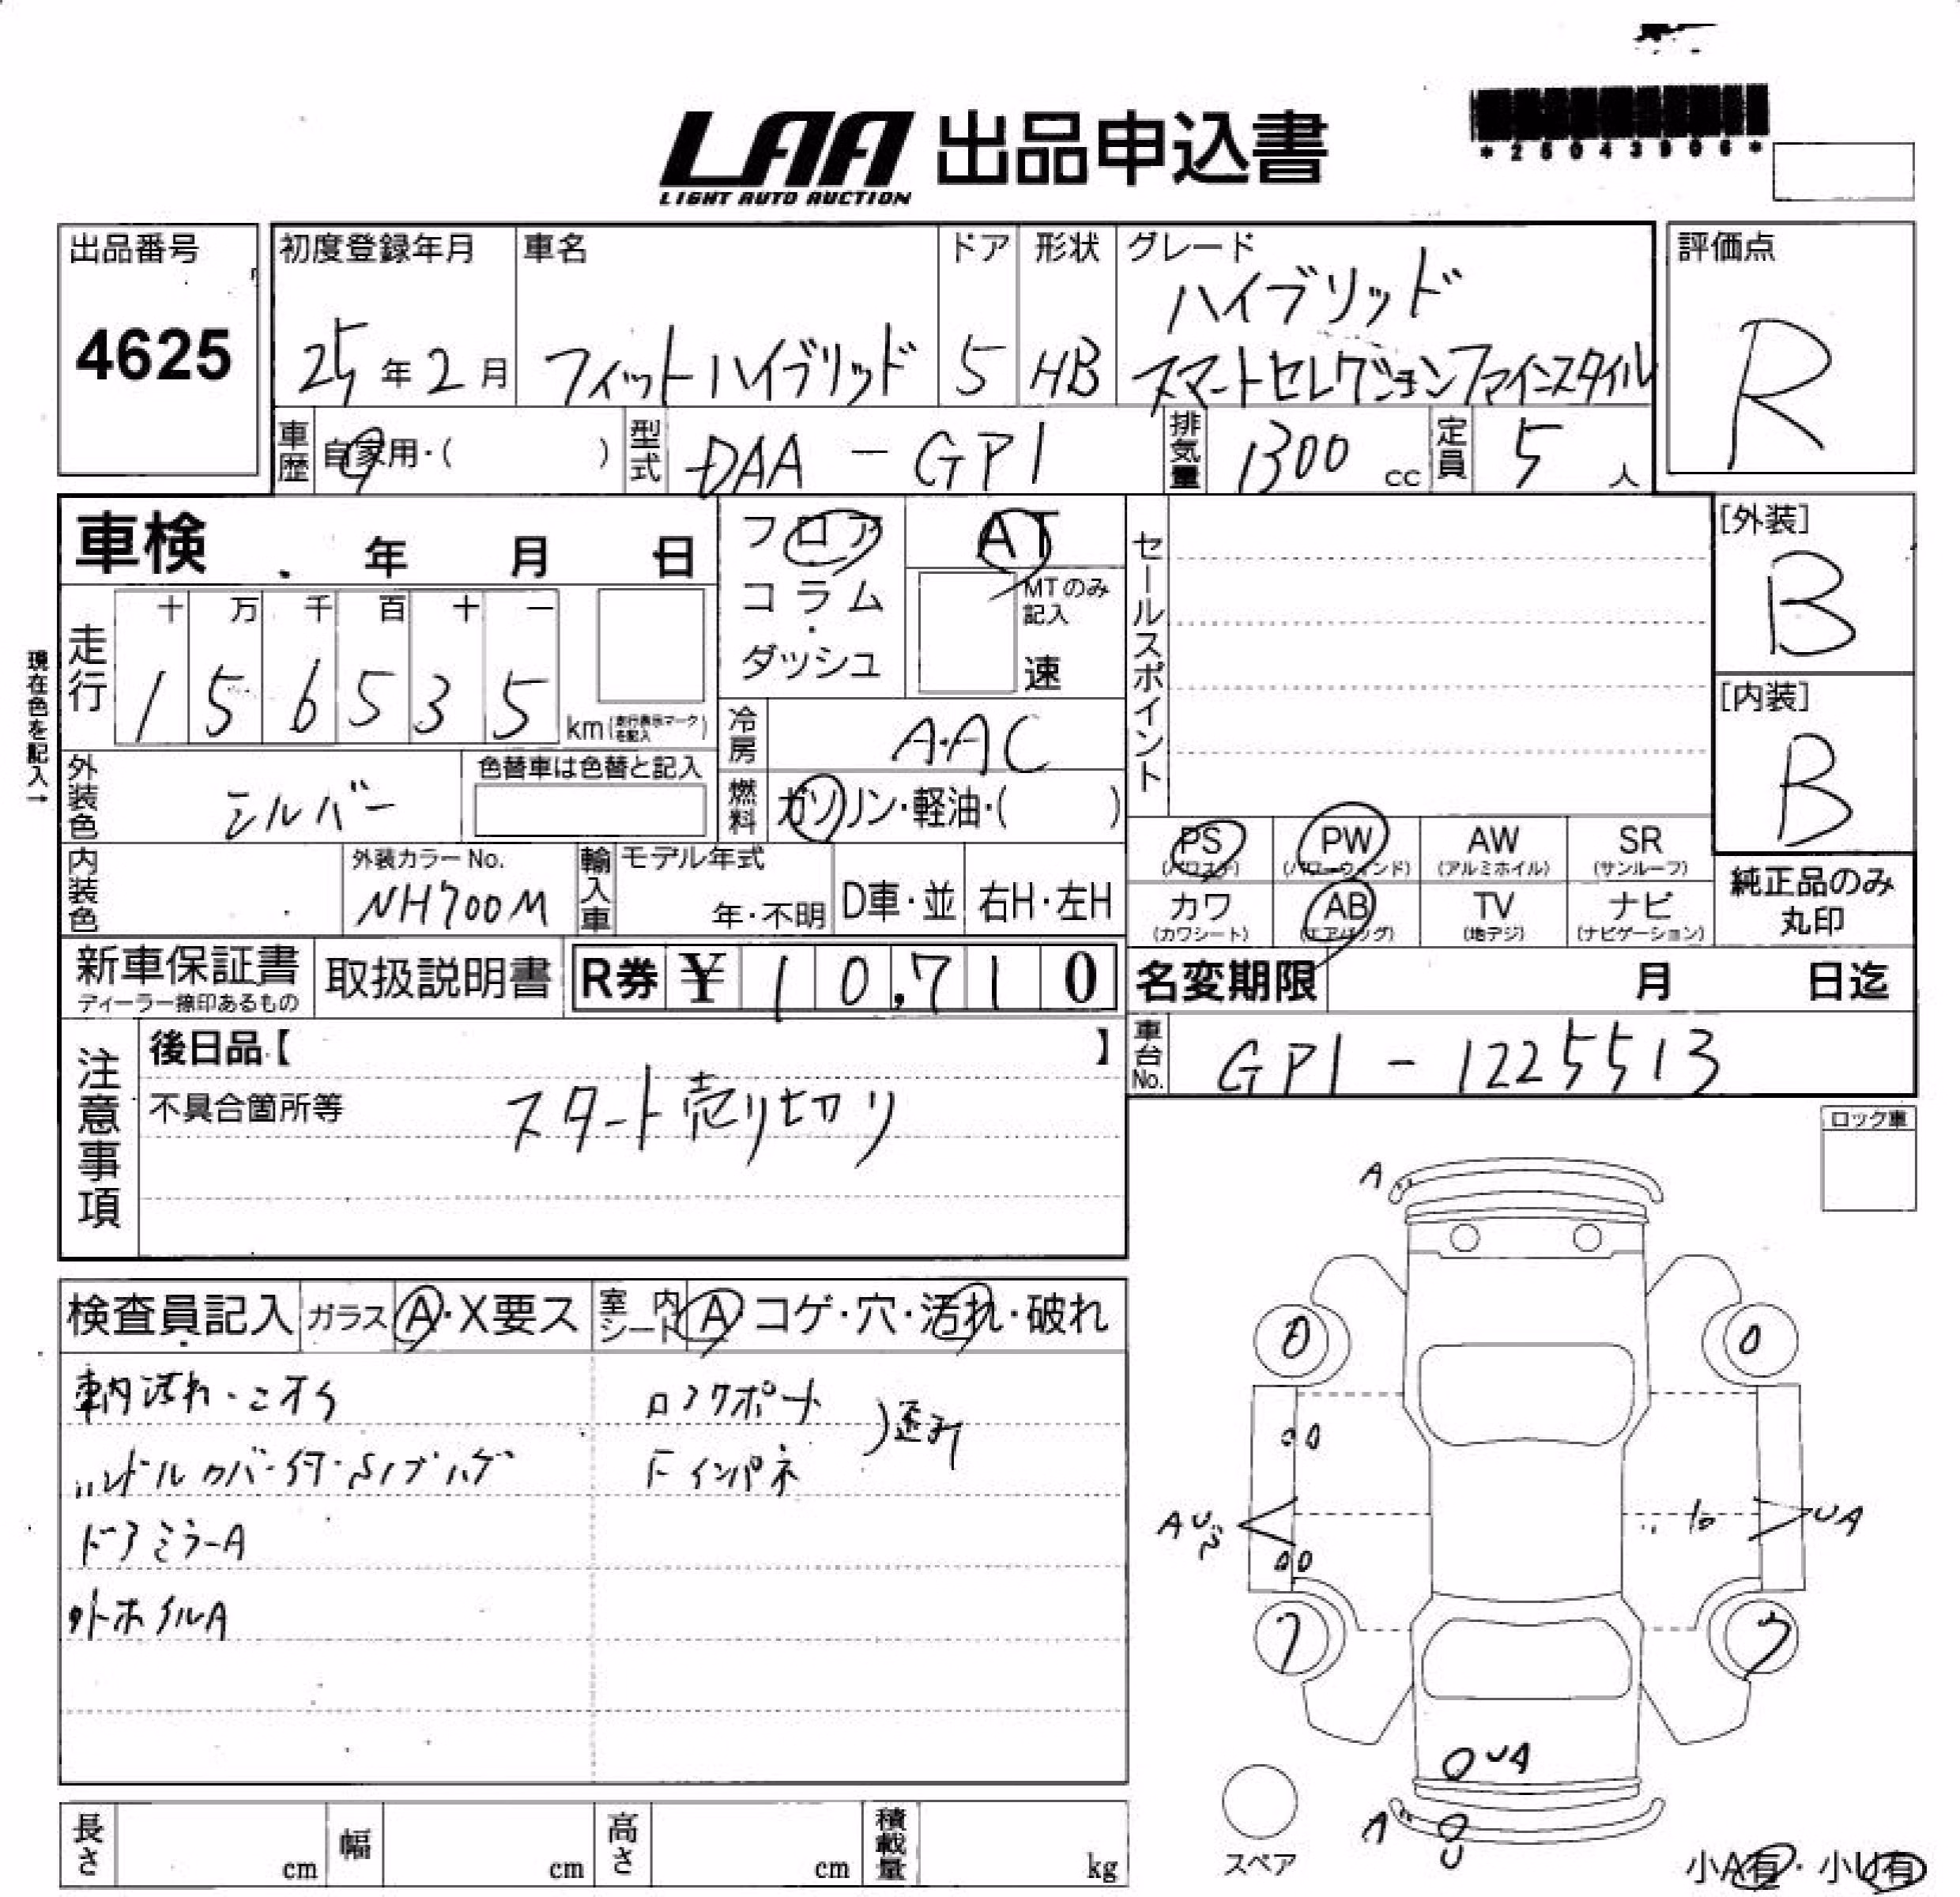 LAA 出品申込書
LIGHT AUTO AUCTION
*25043906*
出品番号
4625
初度登録年月
25年2月
車名
フィットハイブリッド
ドア
5
形状
HB
グレード
ハイブリッド
スマートセレクションファインスタイル
評価点
R
車歴
自家用・( )
型式
DAA-GP1
排気量
1300 cc
定員
5 人
車検 年 月 日
フロア
コラム
・
ダッシュ
AT
MTのみ記入
速
セールスポイント
[外装]
B
[内装]
B
現在色を記入→
走行
十 万 千 百 十 一
1 5 6 5 3 5
km(走行表示マークを記入)
冷房
A・AC
外装色
シルバー
色替車は色替と記入
燃料
ガソリン・軽油・( )
PS
(パワステ)
PW
(パワーウィンド)
AW
(アルミホイル)
SR
(サンルーフ)
カワ
(カワシート)
AB
(エアバッグ)
TV
(地デジ)
ナビ
(ナビゲーション)
純正品のみ
丸印
内装色
外装カラーNo.
NH700M
輸入車
モデル年式
年・不明
D車・並
右H・左H
新車保証書
ディーラー捺印あるもの
取扱説明書
R券 ¥ 10,710
名変期限 月 日迄
車台No.
GP1-1225513
注意事項
後日品【 】
不具合箇所等
スタート売り切り
ロック車
検査員記入
ガラス
A・X要ス
室内シート
A・コゲ・穴・汚れ・破れ
車内汚れ・ニオイ
ハンドルカバー付・シフトハゲ
ドアミラーA
外ホイルA
コアサポート
Fインパネ
)歪み
A
0
0
AU
UA
7
7
UA
A
U
スペア
小A有・小U有
長さ cm
幅 cm
高さ cm
積載量 kg